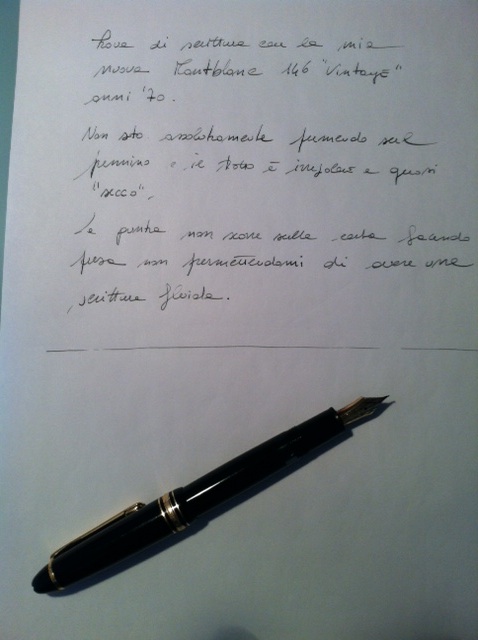 Prova di scrittura con la mia
nuova Montblanc 146 "Vintage"
anni '70.
Non sto assolutamente premendo sul
pennino e il tratto è irregolare e quasi
"secco".
La punta non scorre sulla carta facendo
presa non permettendomi di avere una
scrittura fluida.